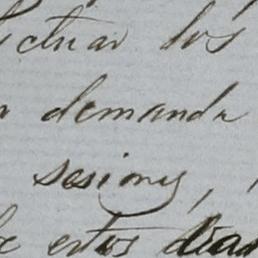 ctuar los
demanda
sesiones,
de estos dias